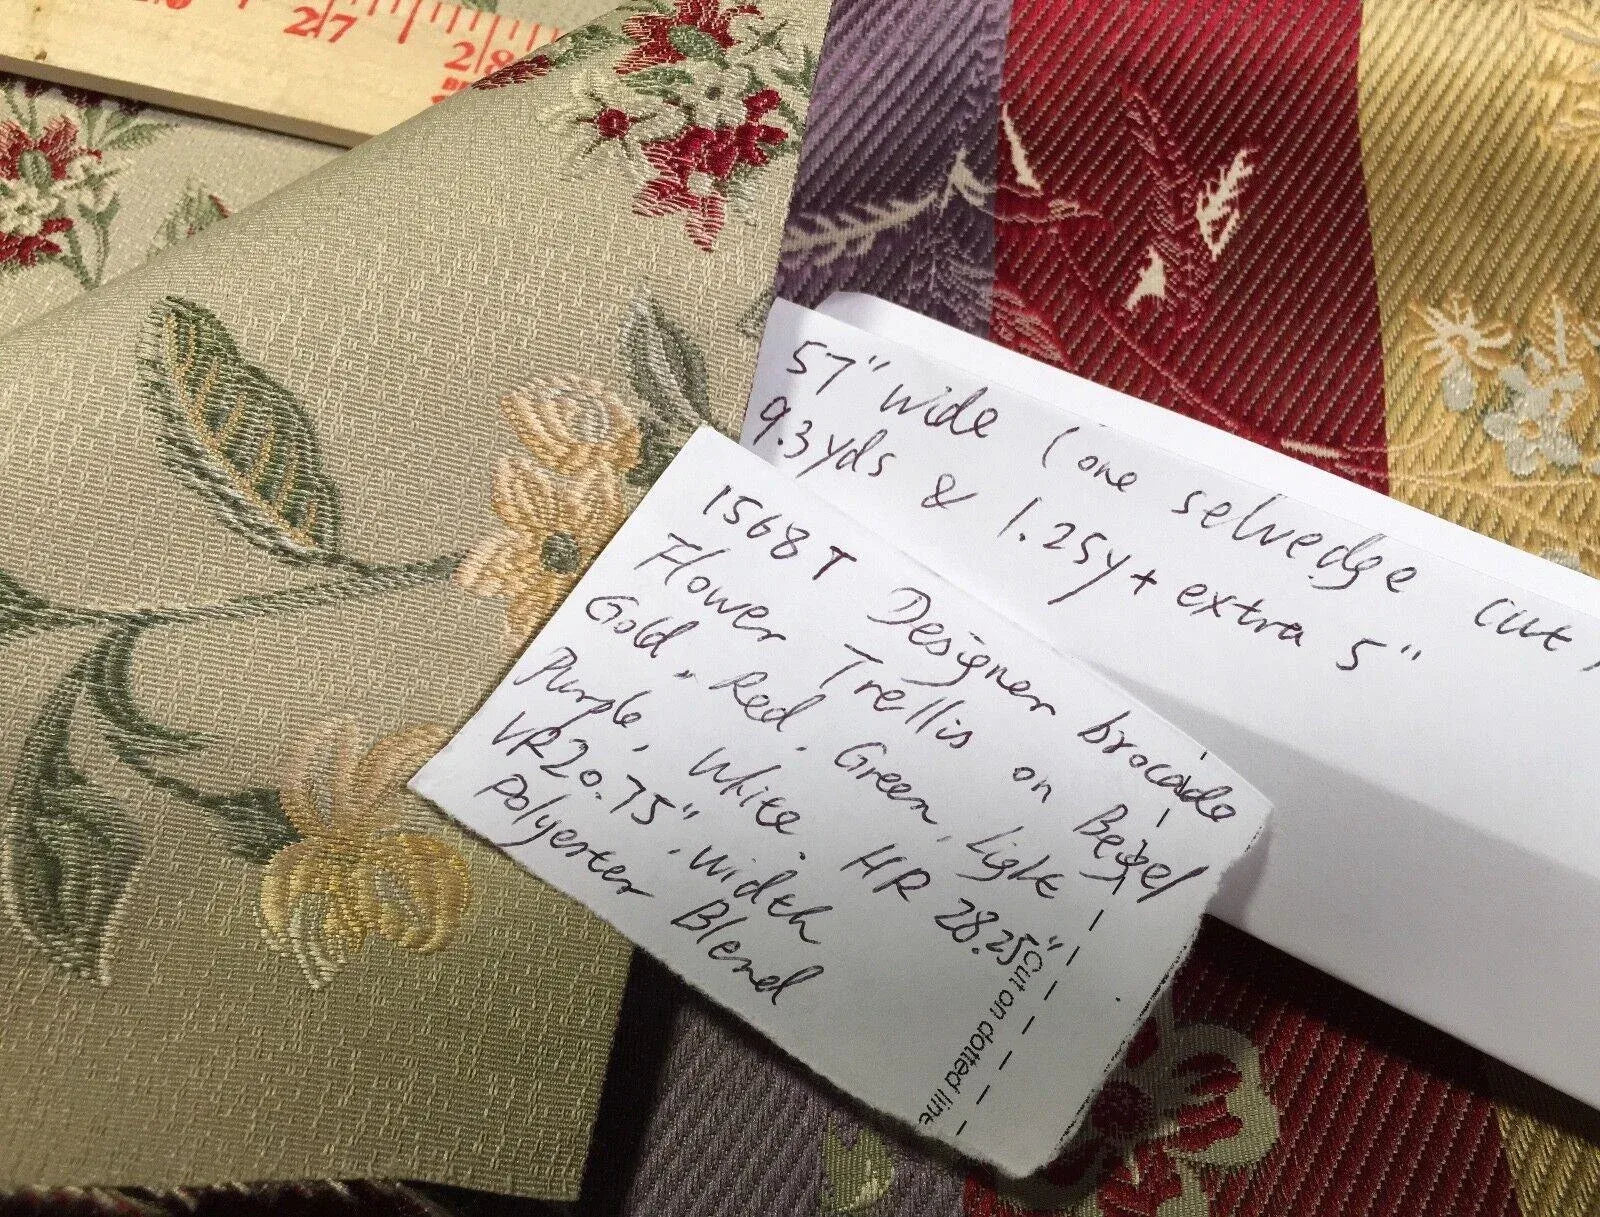 27
28
57" wide (one selvedge cut,
9.3yds & 1.25y + extra 5"
1568T Designer brocade
Flower Trellis on Beige/
Gold, Red, Green, Light
Purple, White. HR 28.25"
VR20.75", width
Polyester Blend
Cut on dotted line